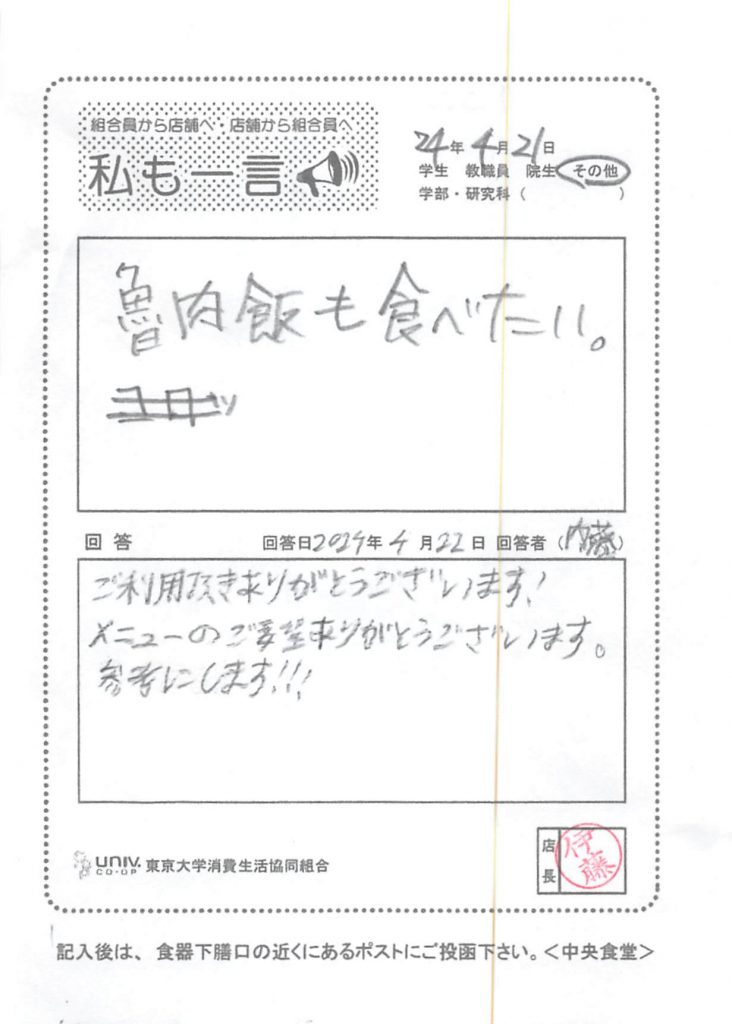 組合員から店舗へ・店舗から組合員へ
私も一言
24年4月21日
学生 教職員 院生 その他
学部・研究科（ ）
魯肉飯も食べたい。
回答 回答日2024年4月22日 回答者（内藤）
ご利用頂きありがとうございます!
メニューのご要望ありがとうございます。
参考にします!!!
店長 伊藤
UNIV. CO-OP 東京大学消費生活協同組合
記入後は、食器下膳口の近くにあるポストにご投函下さい。＜中央食堂＞